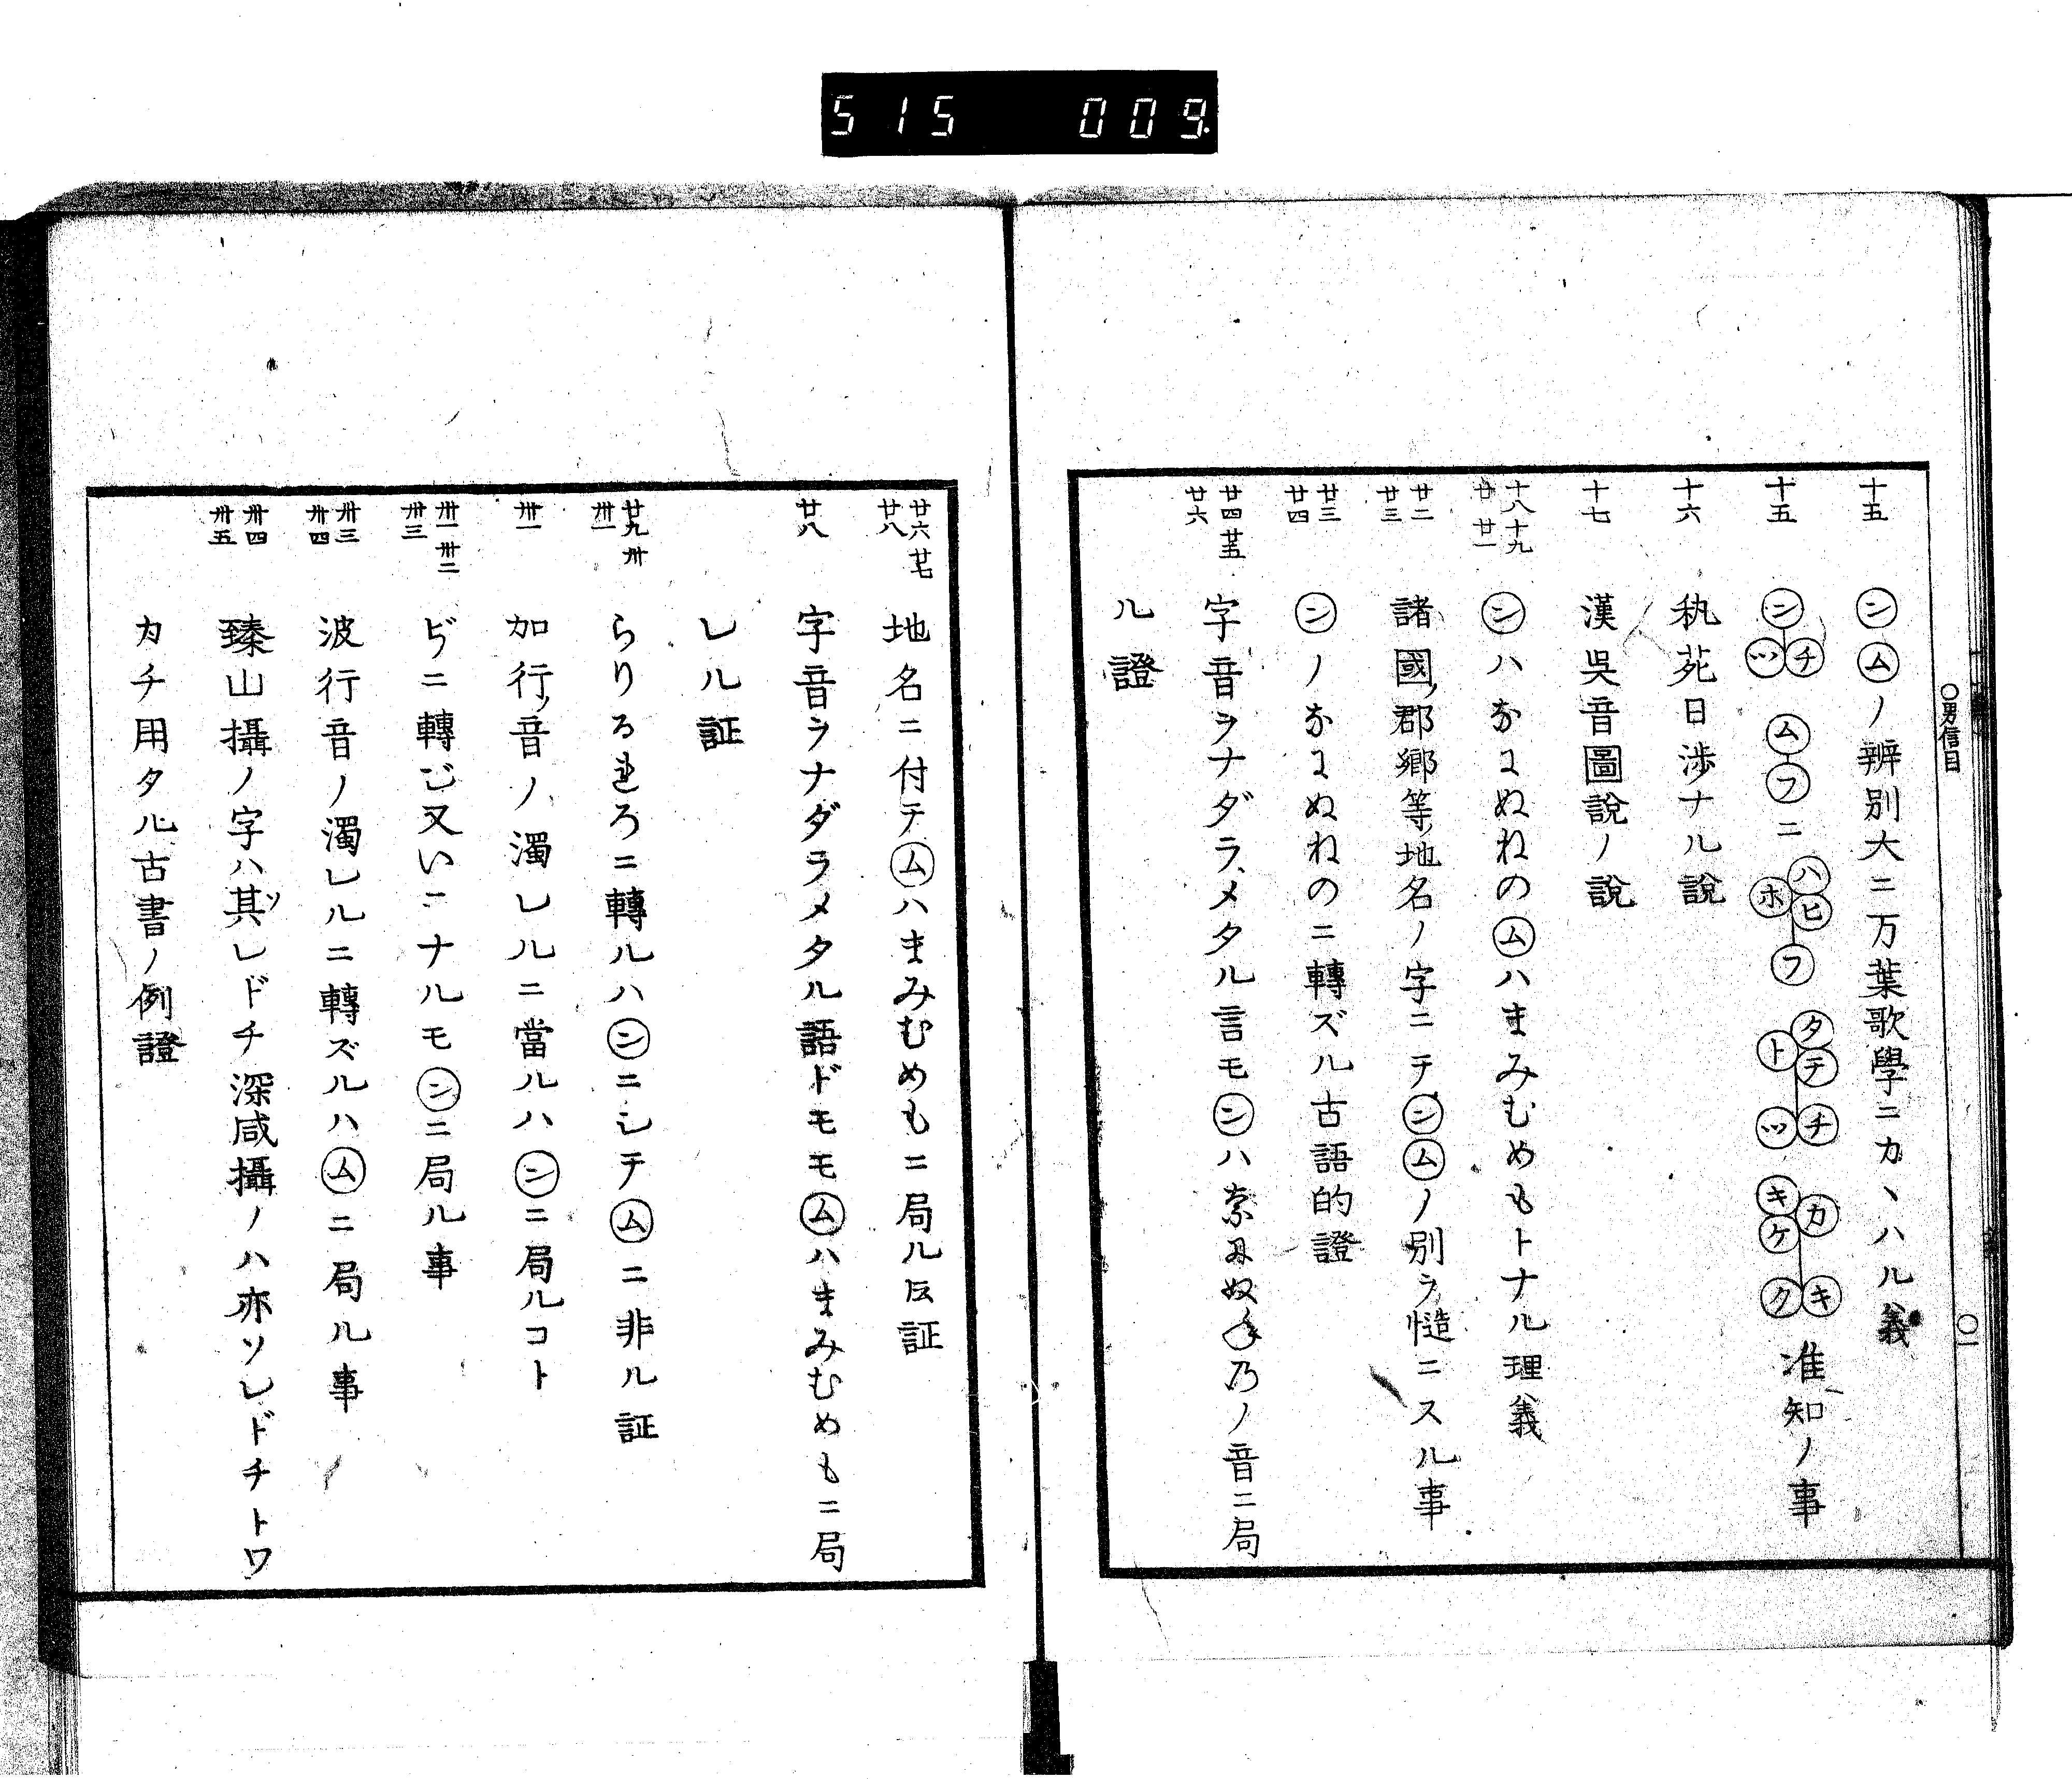 515 009
○男信目
○一
十五 ㋛㋰ノ辨別大ニ万葉歌學ニカヽハル義
十五 ㋛㋠㋡ ㋰㋫ニ㋩㋪㋭㋫ ㋟㋢㋣㋠㋡ ㋕㋖㋘㋖㋗ 准知ノ事
十六 秇苑日渉ナル説
十七 漢吳音圖説ノ説
十八 十九 廿 廿一 ㋛ハなにぬねの㋰ハまみむめもトナル理義
廿二 廿三 諸國ノ郡郷等ノ地名ノ字ニテン㋰ノ別ヲ慥ニスル事
廿三 廿四 ンノなにぬねのニ轉ズル古語的證
廿四 廿五 廿六 字音ヲナダラメタル言モンハ奈尓奴年乃ノ音ニ局
ル證
廿六 廿七 廿八 地名ニ付テ㋰ハまみむめもニ局ル証
廿八 字音ヲナダラメタル語ドモモ㋰ハまみむめもニ局
レル証
廿九 卅 卅一 らりるれろニ轉ルハンニシテ㋰ニ非ル証
卅一 加行ノ音ノ濁レルニ當ルハンニ局ルコト
卅一 卅二 卅三 ニ轉じ又いニナルモンニ局ル事
卅三 卅四 波行音ノ濁レルニ轉ズルハ㋰ニ局ル事
卅四 卅五 臻山攝ノ字ハ其ソレドチ深咸攝ノハ亦ソレドチトワ
カチ用タル古書ノ例證